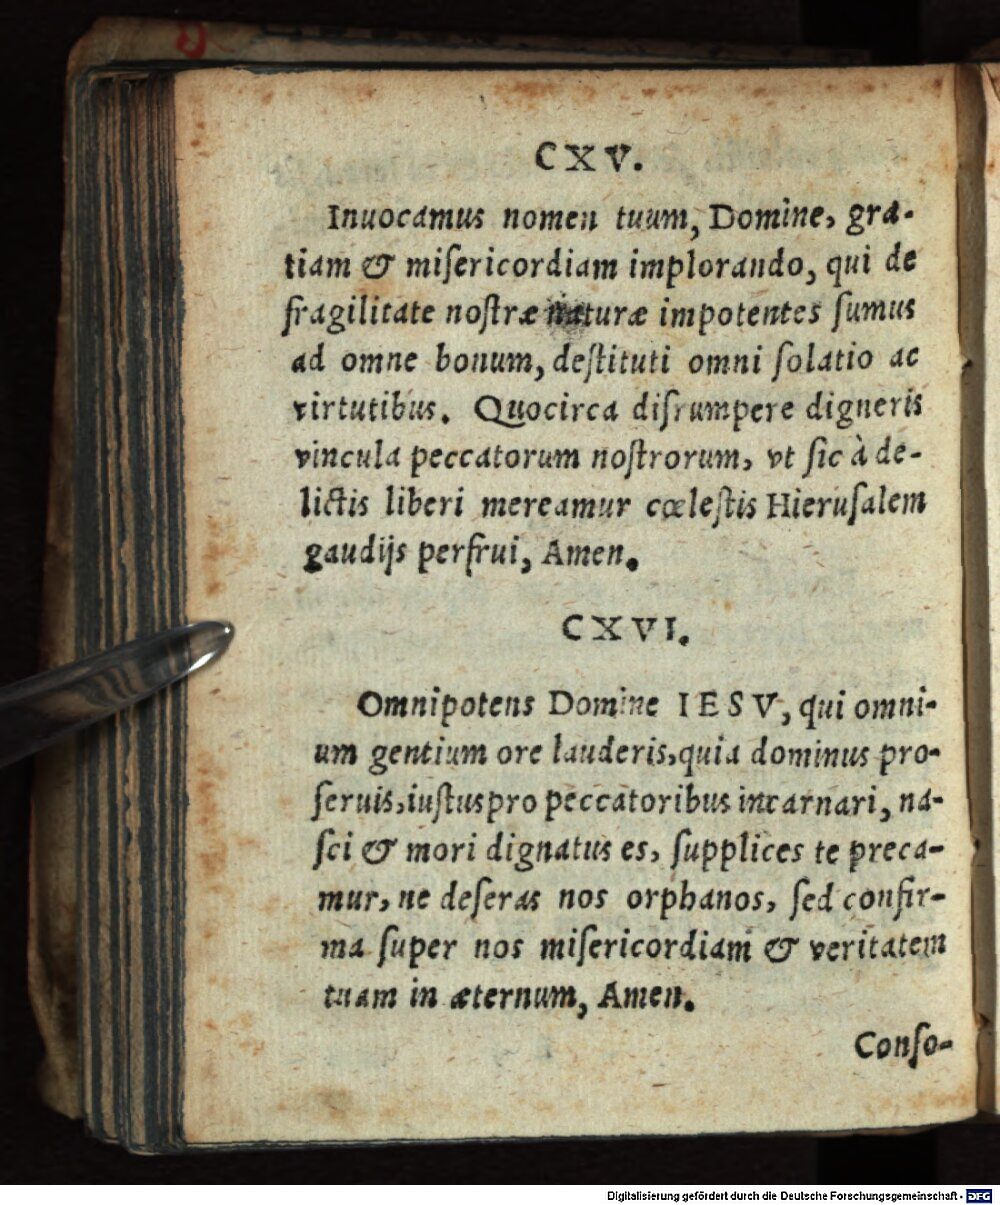 CXV.
Inuocamus nomen tuum, Domine, gra-
tiam & miſericordiam implorando, qui de
fragilitate noſtræ naturæ impotentes ſumus
ad omne bonum, deſtituti omni ſolatio ac
virtutibus. Quocirca diſrumpere digneris
vincula peccatorum noſtrorum, vt ſic à de-
lictis liberi mereamur cœleſtis Hieruſalem
gaudijs perfrui, Amen.
CXVI.
Omnipotens Domine IESV, qui omni-
um gentium ore lauderis, quia dominus pro
ſeruis, iuſtus pro peccatoribus incarnari, na-
ſci & mori dignatus es, ſupplices te preca-
mur, ne deſeras nos orphanos, ſed confir-
ma ſuper nos miſericordiam & veritatem
tuam in æternum, Amen.
Conſo-
Digitalisierung gefördert durch die Deutsche Forschungsgemeinschaft - DFG